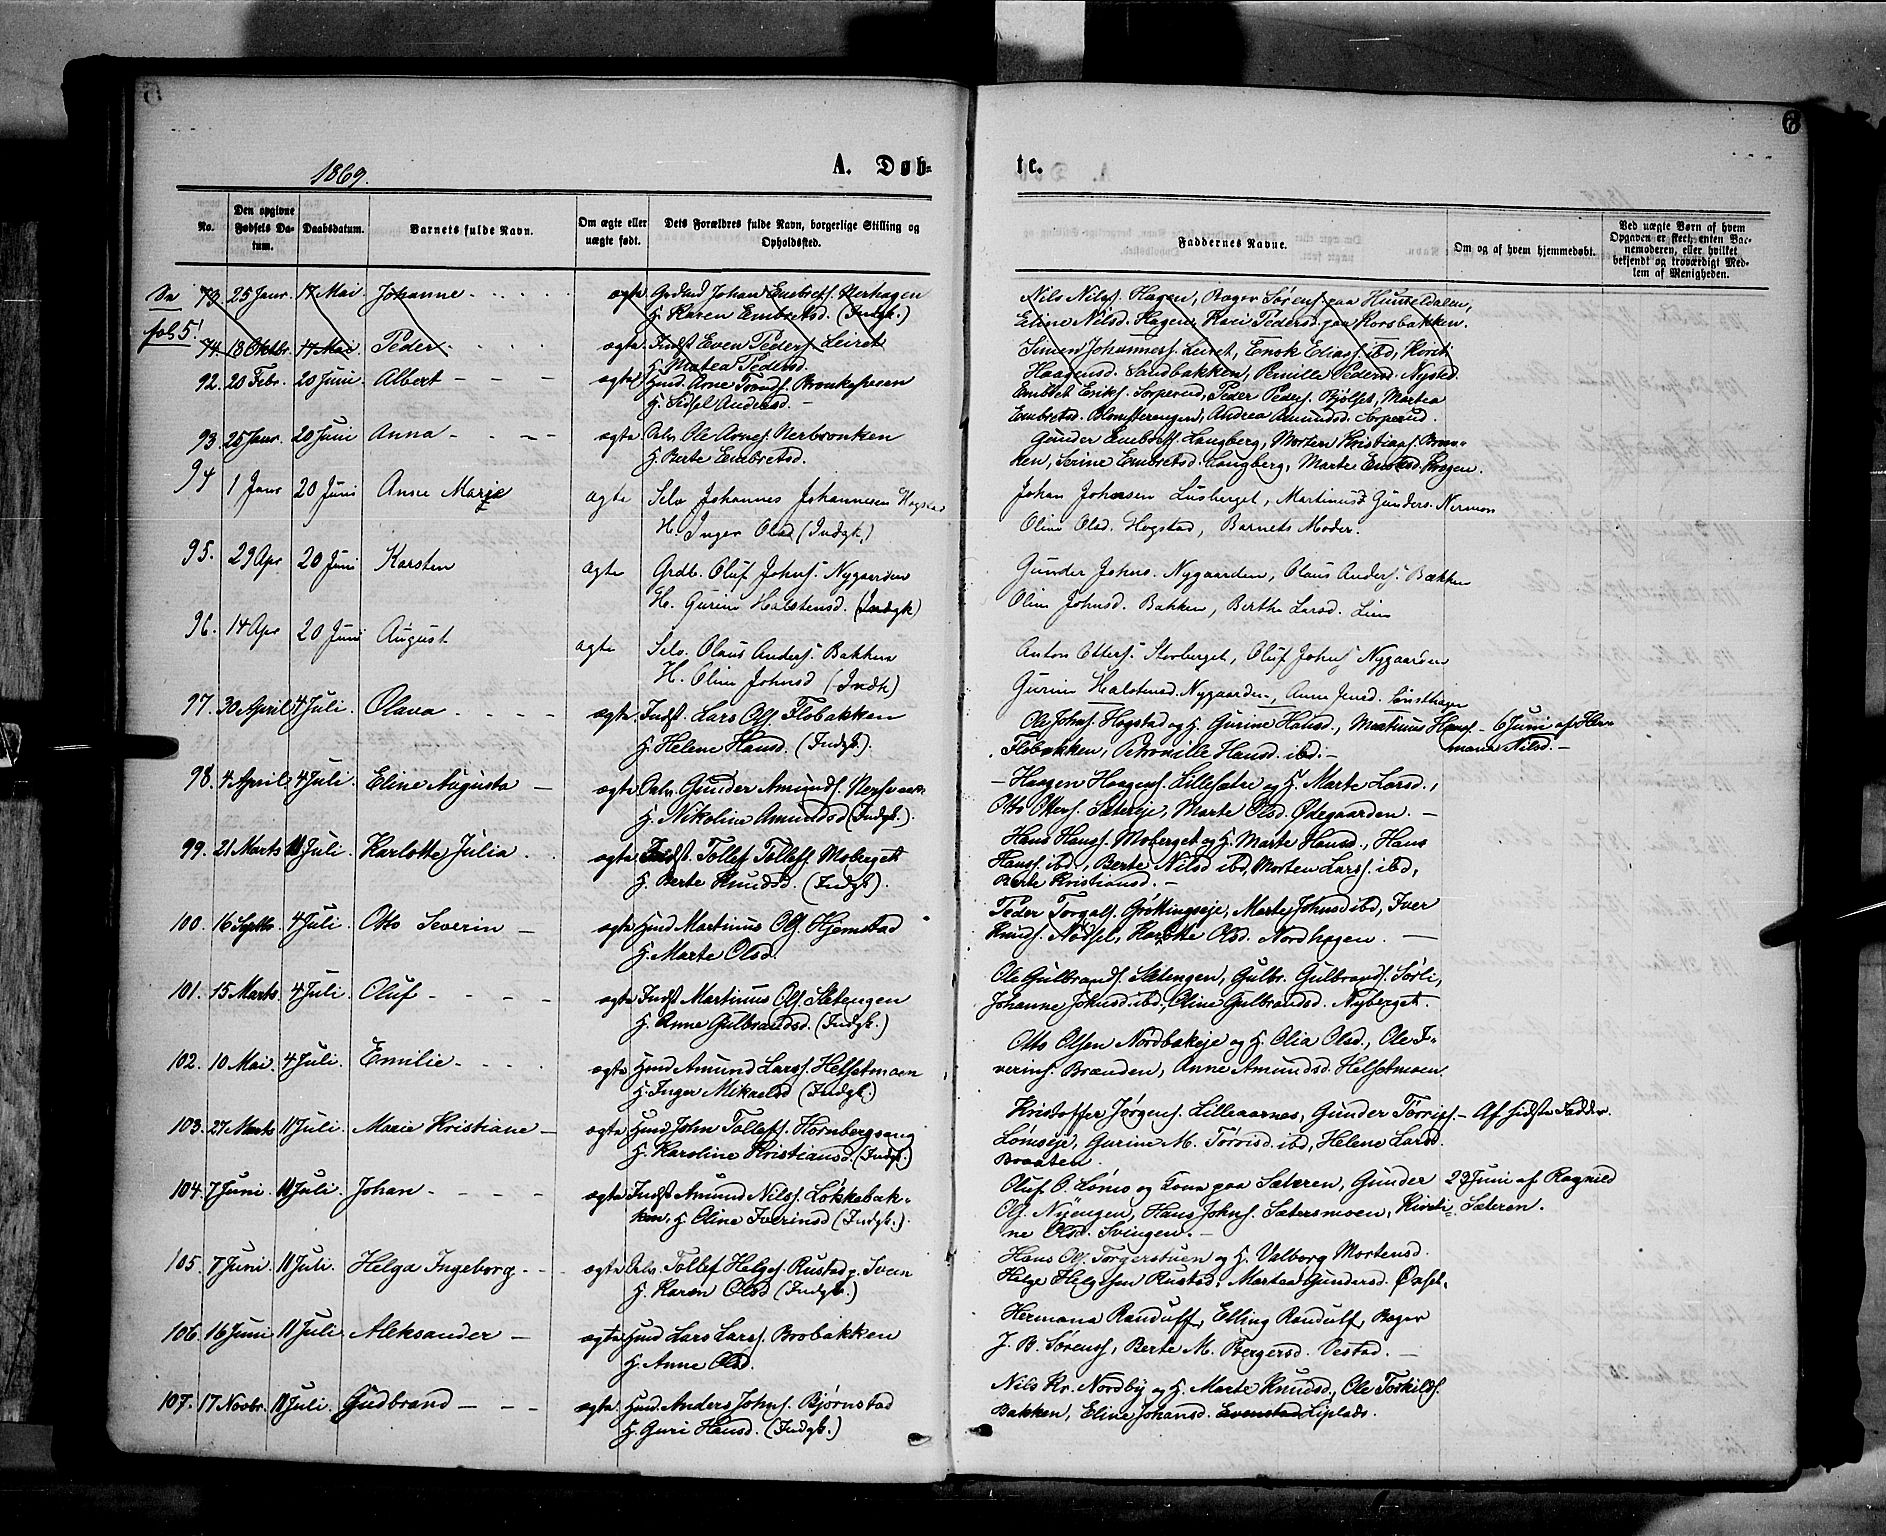 6
1869.
A. Døb-
te.
No.
Den opgivne Fødsels Datum.
Daabsdatum.
Barnets fulde Navn.
Om ægte eller uægte født.
Dets Forældres fulde Navn, borgerlige Stilling og Opholdssted.
Faddernes Navne.
Om og af hvem hjemmedøbt.
Ved uægte Børn af hvem Opgaven er skeet, enten Barnemoderen, eller hvilket bekjendt og troværdigt Medlem af Menigheden.
fol 5!
73 25 Janr. 17 Mai Johanne ægte Johan Embretss. Nerhagen
H. Karen Embretsd. (Indgk.)
Nils Nilss. Hagen, Bager Sørens. paa Hunseldalen,
Eline Nilsd. Hagen, Kari Pedersd. paa Korsbakken.
74 18 Oktbr. 17 Mai Peder ægte Indst Even Peders. Leiret
H. Matea Pedersd.
Simen Johanness. Leiret, Ensk Eliass. ibd, Kirsti
Haagensd. Sandbakken, Pernille Pedersd. Nysted.
92. 20 Febr. 20 Juni Albert ægte Hmd. Arne Tronds.
H. Sidsel Andersd.
Embret Eriks. Sorperud, Peder Peders. Bjølset, Martea
Embretsd. Blomsterengen, Andrea Amundsd. Sorperud.
93. 25 Janr. 20 Juni Anna ægte Ole Arnes. Nerbronken
H. Berte Embretsd.
Gunder Embretss. Langberg, Morten Kristians. Bron-
ken, Serine Embretsd. Langberg, Marte Enoksd. Hagen.
94 1 Janr 20 Juni Anne Marie ægte Selv Johannes Johannesen Hogstad
H. Inger Olsd (Indgk.)
Johan Johnsen Lusberget, Martinus Gunders. Nermon
Oline Olsd. Hogstad, Barnets Moder.
95. 29 Apr 20 Juni Karsten ægte Grdb. Oluf Johns. Nygaarden
H. Gurine Halstensd. (Indgk)
Gunder Johns. Nygaarden, Olaus Anders. Bækken
Oline Johnsd. Bakken, Berthe Larsd. Lien
96. 14 Apr 20 Juni August ægte Selv. Olaus Anders. Bakken
H. Oline Johnsd (Indk)
Anton Otters. Storberget, Oluf Johns Nygaarden
Gurine Halstensd. Nygaarden, Anne Jensd.
97. 30 April 4 Juli. Olava ægte Indst. Lars Ols. Flobakken
H. Helene Hansd. (Indgk.).
Ole Johns. Hogstad og H. Gurine Hansd., Martinus Hans. - 6 Juni af Her-
Flobakken, Petronille Hansd. ibd. - mana Nilsd. -
98. 4 April 4 Juli. Eline Augusta ægte Gunder Amunds.
H. Nikoline Amundsd (Indgk.).
- Haagen Haagens. Lillesætre og H. Marte Larsd.,
Otto Otters. Sætereje, Marte Olsd. Ødegaarden. -
99. 21 Marts 11 Juli. Karlotte Julia ægte Indst. Tollef Tollefs. Moberget
H. Berte Knudsd. (Indgk.).
Hans Hanss. Moberget og H. Marte Hansd., Hans
Hanss. ibd, Berte Nilsd ibd, Morten Larss. ibd,
Berte Kristiansd. -
100. 16 Septbr. 4 Juli. Otto Severin - ægte Hmd Martinus Ols. Hjemstad
H. Marte Olsd.
Peder Torgals. Grøttingseje, Marte Johnsd ibd, Iver
Knuds. Nødsel, Olsd. Nordhagen. -
101. 15 Marts 4 Juli. Oluf ægte Indst Martinus Ols. Sletengen
H. Anne Gulbrandsd. (Indgk.)
Ole Gulbrands. Sletengen, Gulbr. Gulbrands. Sørli,
Johanne Johnsd. ibd, Oline Gulbrandsd. Nyberget.
102. 10 Mai 4 Juli. Emilie ægte Hmd Amund Larss. Helsetmoen
H. Inger Mikaelsd (Indgk.)
Otto Olsen Nordbakeje og H. Olia Olsd., Ole I-
verins. Brænden, Anne Amundsd. Helsetmoen.
103. 27 Marts 11 Juli. Marie Kristiane - ægte Hmd John Tollefs. Hornbergseng
H. Karoline Kristiansd. (Indgk.)
Kristoffer Jørgens. Lilleaarnes, Gunder Tørris. - Af sidste Fadder.
Lømseje, Gurine M. Tørrisd. ibd, Helene Larsd.
Braaten.
104. 7 Juni. 11 Juli. Johan ægte Indst Amund Nilss. Løkkebak-
ken, H. Oline Iverinsd (Indgk.)
Oluf O. Lømo og Kona paa Sæteren, Gunder 29 Juni af Ragnild
Ols. Nyengen, Hans Johns. Sætersmoen, Kirsti- Sæteren.
ne Olsd. Svingen. -
105. 7 Juni 11 Juli. Helga Ingeborg ægte Tollef Helges. Rustad
H. Karen Olsd (Indgk.)
Hans Ols. Torgerstuen og H. Valborg Mortensd.
Helge Helgesen Rustad, Martea Gundersd. Øxset.
106. 16 Juni 11 Juli. Aleksander - ægte Hmd Lars Larss. Brobakken
H. Anne Olsd.
Hermana Randulff, Elling Randulf, Bager
J. B. Sørens., Berte M. Bergersd. Vestad. -
107. 17 Novbr. 11 Juli. Gudbrand ægte Hmd Anders Johns. Bjørnstad
H. Guri Hansd. (Indgk.)
Nils Kr. Nordby og H. Marte Knudsd., Ole Torkilds.
Bakken, Eline Johansd. Evenstad Liplads.